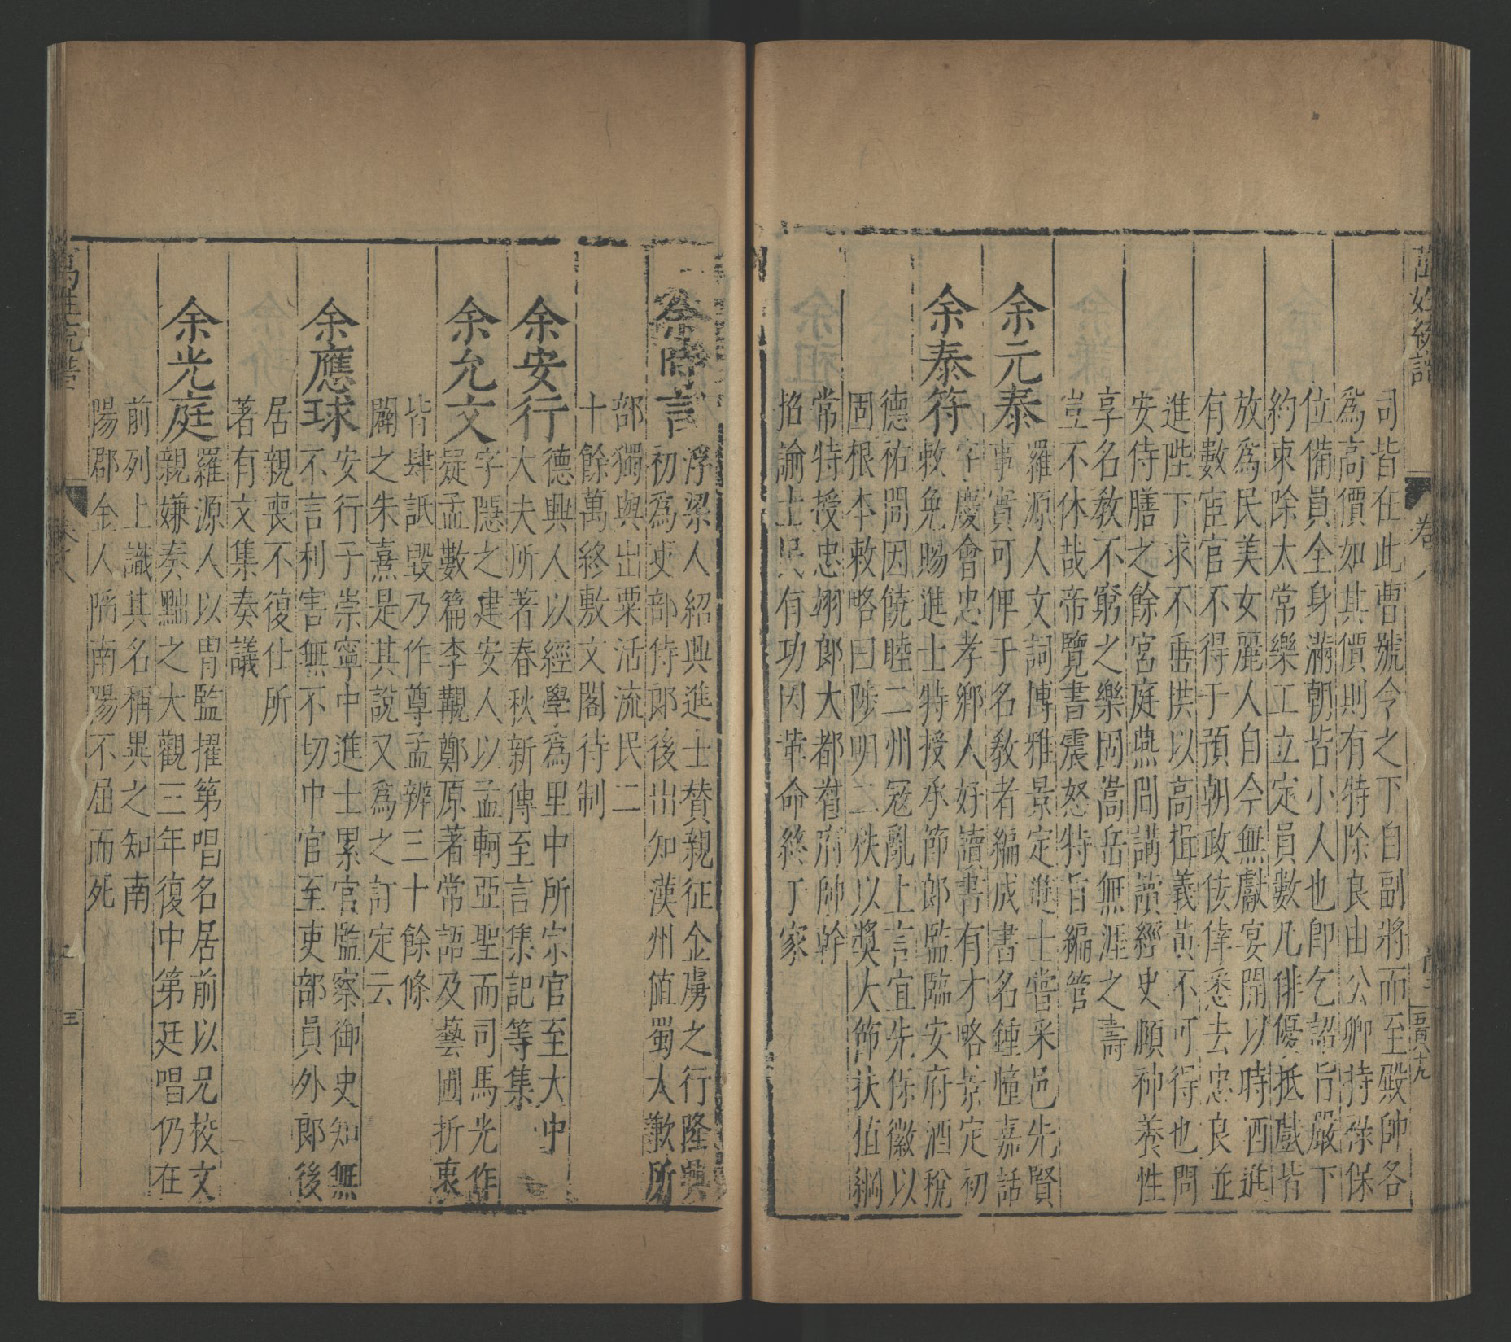 萬姓統譜
卷八
司皆在此曹號令之下自副將而至殿帥各
為高價如其價則有特除良由公卿持祿保
位備員全身滿朝皆小人也即乞詔旨嚴下
約束除太常樂工立定員數凡俳優抵戲皆
放為民美女麗人自今無獻宴閒以時酒進
有數宦官不得于預朝政佞倖悉去忠良並
進陛下求不垂拱以高揖義黃不可得也問
安侍膳之餘宮庭燕閒講讀經史頤神養性
享名教不窮之樂固嵩岳無涯之壽
豈不休哉帝覽書震怒特旨編管
余元泰羅源人文詞博雅景定進士嘗采邑先賢
事實可俾于名教者編成書名鍾幢嘉話
余泰符字慶會忠孝鄉人好讀書有才略景定初
敕免賜進士特授承節郎監臨安府酒稅
德祐間因饒睦二州冠亂上言宜先保徽以
固根本敕略曰陟明二秩以獎大節扶植綱
常特授忠翊郎大都督府帥幹
招諭土民有功因革命終于家
余時言浮梁人紹興進士贊親征金虜之行隆興
初為吏部侍郎後出知漢州值蜀大歉所
部獨與出粟活流民二
十餘萬終敷文閣待制
余安行德興人以經學為里中所宗官至大中
大夫所著春秋新傳至言集記等集
余允文字隱之建安人以孟軻亞聖而司馬光作
疑孟數篇李覯鄭原著常語及藝圃折衷
皆肆詆毀乃作尊孟辨三十餘條
闢之朱熹是其說又為之訂定云
余應球安行子崇寧中進士累官監察御史知無
不言利害無不切中官至吏部員外郎後
居親喪不復仕所
著有文集奏議
余光庭羅源人以胄監擢第唱名居前以兄校文
親嫌奏黜之大觀三年復中第廷唱仍在
前列上識其名稱異之知南
陽郡金人陷南陽不屈而死
萬姓統譜
卷之八
三